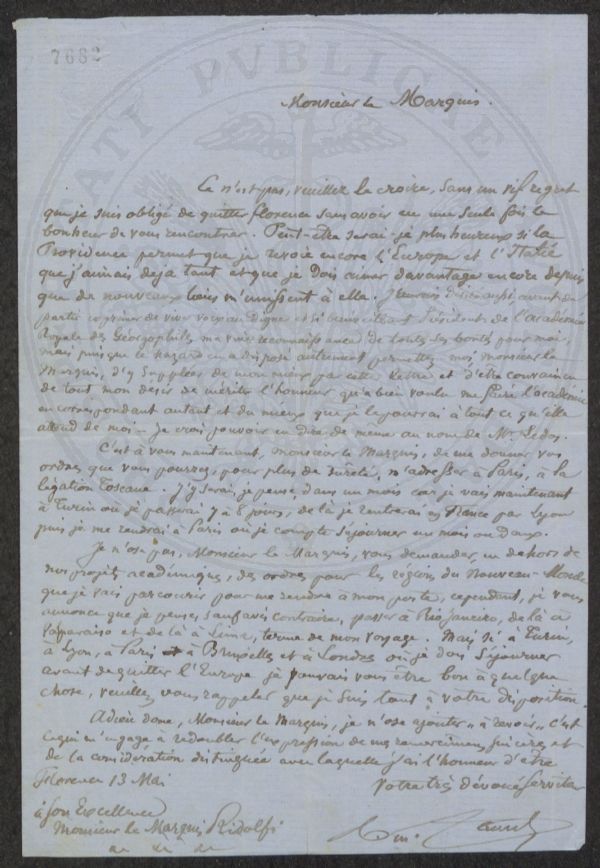 7682
PUBLICAE
Monsieur le Marquis.
Ce n'est pas, veuillez le croire, sans un vif regret
que je suis obligé de quitter florence sans avoir eu une seule fois le
bonheur de vous rencontrer. Peut-être serai-je plus heureux si la
Providence permet que je revoie encore l'Europe et l'Italie
que j'aimais déja tant et que je dois aimer davantage encore depuis
que de nouveaux liens m'unissent à elle. J'aurais désiré aussi, avant de
partir exprimer de vive voix au digne et si bienveillant Président de l'académie
Royale des Géorgophiles ma vive reconnaissance de toutes ses bontés pour moi,
mais puisque le hazard en a disposé autrement permettez moi, monsieur le
Marquis, d'y suppléer de mon mieux par cette lettre et d'être convaincu
de tout mon desir de mériter l'honneur qu'a bien voulu me faire l'académie
en correspondant autant et du mieux que je le pourrai à tout ce qu'elle
attend de moi — je crois pouvoir en dire de même au nom de Mr. Ledos.
C'est à vous maintenant, monsieur le Marquis, de me donner vos
ordres que vous pourrez, pour plus de sureté, m'adresser à Paris, à la
légation Toscane. J'y serai, je pense dans un mois car je vais maintenant
à Turin où je passerai 7 à 8 jours, de là je rentrerai en France par Lyon
puis je me rendrai à Paris où je compte séjourner un mois ou deux.
Je n'ose pas, Monsieur le Marquis, vous demander, en dehors de
nos projets académiques, des ordres pour les régions du Nouveau-Monde
que je vais parcourir pour me rendre à mon poste, cependant, je vous
annonce que je pense, sauf avis contraire, passer à Rio Janeiro, de là à
Valparaiso et de là à Lima, terme de mon voyage. Mais si à Turin,
à Lyon, à Paris à Bruxelles et à Londres où je dois séjourner
avant de quitter l'Europe je pouvais vous être bon à quelque
chose, veuillez vous rappeler que je suis tout à votre disposition.
Adieu donc, Monsieur le Marquis, je n'ose ajouter "à revoir" c'est
ce qui m'engage à redoubler l'expression de mes remercimens sincères et
de la considération distinguée avec laquelle j'ai l'honneur d'être
Florence 13 Mai
Votre très dévoué Serviteur
à son Excellence
Monsieur le Marquis Ridolfi